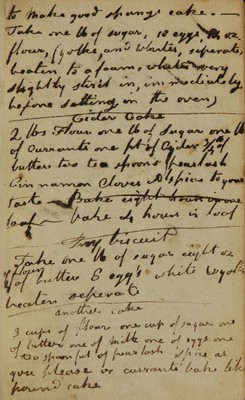 to make good spunge cake.
Take one lb of sugar, 10 eggs
flour, (yolks, and whites, seperate,
beaten to a foam, whites very
slightly stir'd in, immediately
before setting in the oven)
Cider Cake
2 lbs Flour one lb of Sugar one lb
of Currants one pt of Cider 3/4 lb
butter two tea spoons pearlash
Cinnamon Cloves & spice to your
taste - Bake eight hours in one
loaf - bake 4 hours in loaf
biscuit
Take one lb of sugar eight oz
flour
of butter 6 eggs white & yolk
beaten seperate
another cake
3 cups of flour one cup of sugar one
of butter one of milk one of eggs one
tea spoonful of pearlash spice as
you please or currants bake like
pound cake